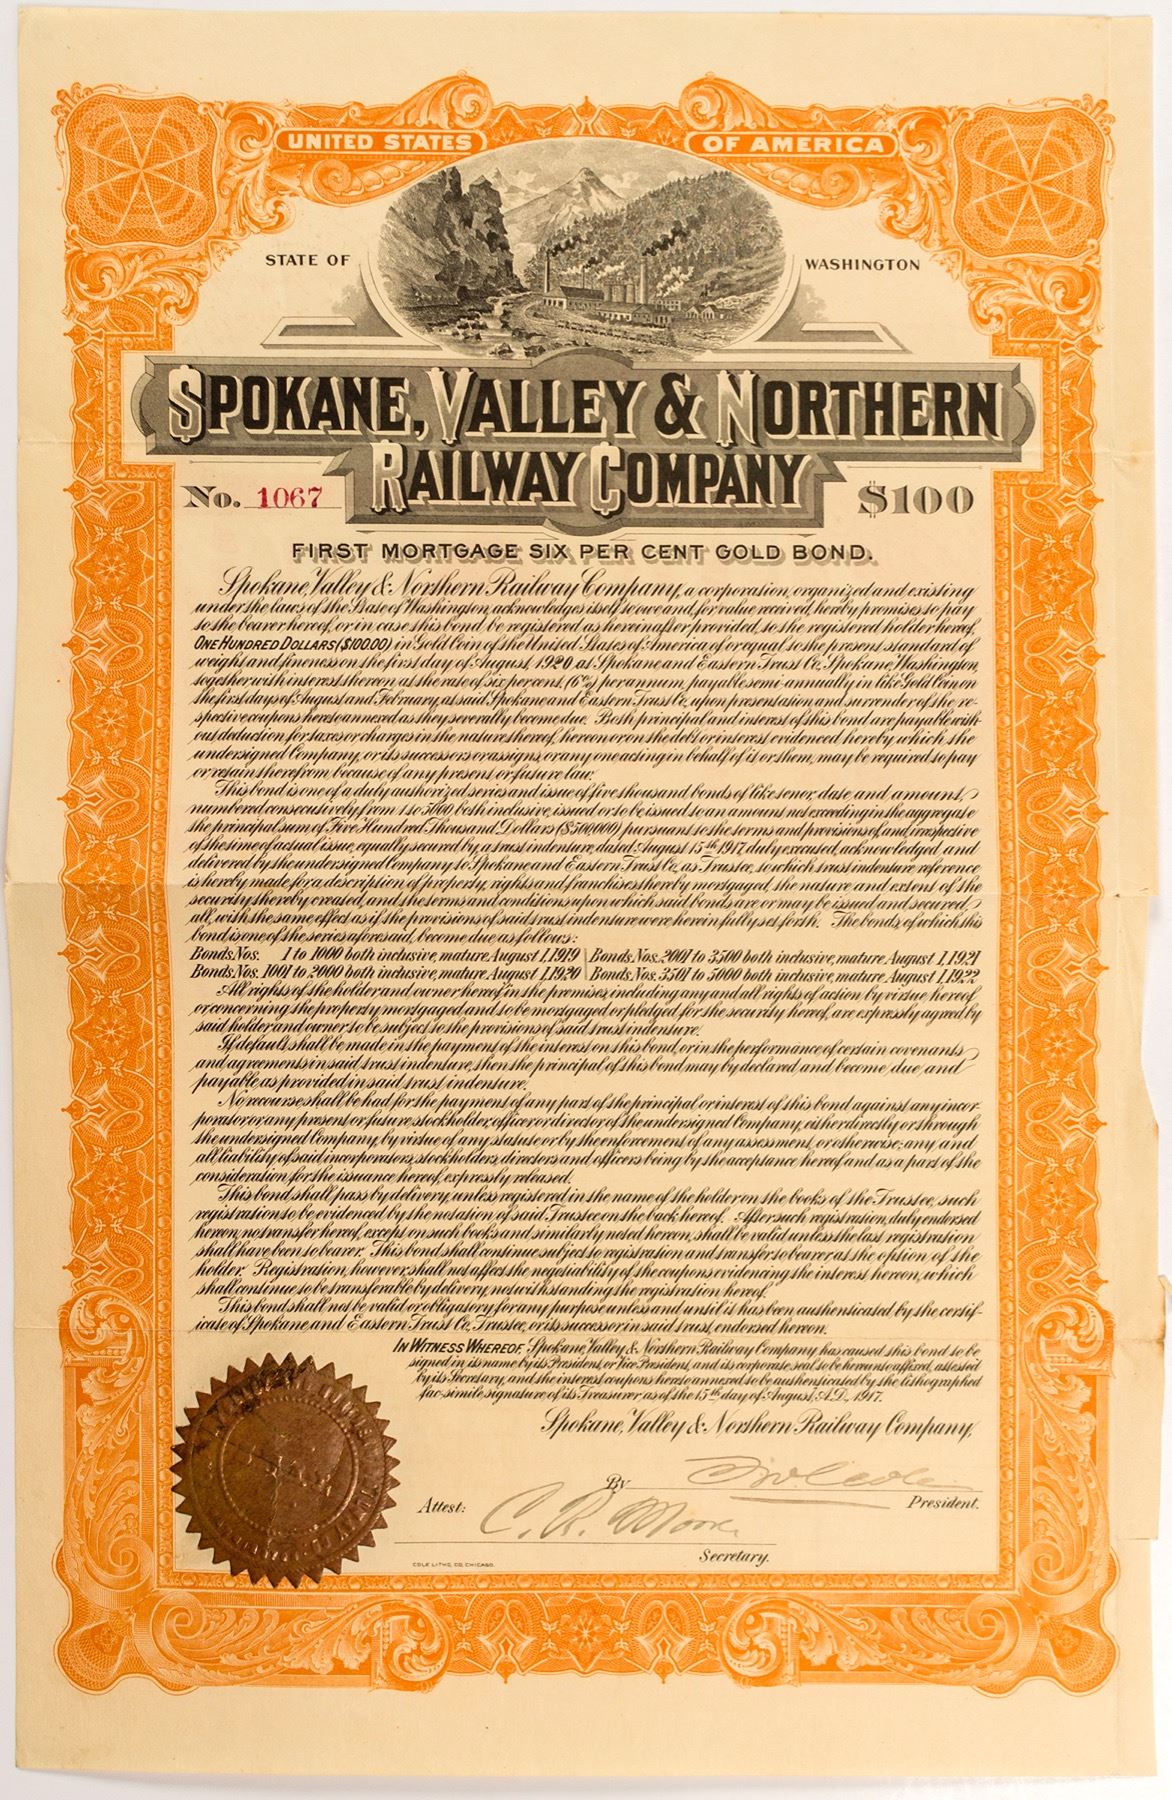 UNITED STATES OF AMERICA
STATE OF WASHINGTON
SPOKANE, VALLEY & NORTHERN
RAILWAY COMPANY
No. 1067 $100
FIRST MORTGAGE SIX PER CENT GOLD BOND.
Spokane, Valley & Northern Railway Company, a corporation, organized and existing
under the laws of the State of Washington, acknowledges itself to owe and, for value received, hereby promises to pay
to the bearer hereof, or in case this bond be registered as hereinafter provided, to the registered holder hereof,
ONE HUNDRED DOLLARS ($100.00) in Gold Coin of the United States of America of or equal to the present standard of
weight and fineness on the first day of August, 1920 at Spokane and Eastern Trust Co., Spokane, Washington,
together with interest thereon at the rate of six percent, (6%) per annum, payable semi-annually in like Gold Coin on
the first days of August and February, at said Spokane and Eastern Trust Co., upon presentation and surrender of the re-
spective coupons hereto annexed as they severally become due. Both principal and interest of this bond are payable with-
out deduction for taxes or charges in the nature thereof, hereon or on the debt or interest evidenced hereby which the
undersigned Company, or its successors or assigns, or any one acting in behalf of it or them, may be required to pay
or retain therefrom because of any present or future law.
This bond is one of a duly authorized series and issue of five thousand bonds of like tenor, date and amount,
numbered consecutively from 1 to 5000, both inclusive, issued or to be issued to an amount not exceeding in the aggregate
the principal sum of Five Hundred Thousand Dollars ($500,000) pursuant to the terms and provisions of, and, irrespective
of the time of actual issue, equally secured by, a trust indenture, dated August 15th 1917 duly executed, acknowledged and
delivered by the undersigned Company to Spokane and Eastern Trust Co., as Trustee, to which trust indenture reference
is hereby made for a description of property, rights and franchises thereby mortgaged, the nature and extent of the
security thereby created, and the terms and conditions upon which said bonds are or may be issued and secured,
all, with the same effect as if the provisions of said trust indenture were herein fully set forth. The bonds, of which this
bond is one of the series aforesaid, become due as follows:
Bonds, Nos. 1 to 1000 both inclusive, mature August 1, 1919 Bonds, Nos. 2001 to 3500 both inclusive, mature August 1, 1921
Bonds, Nos. 1001 to 2000 both inclusive, mature August 1, 1920 Bonds, Nos. 3501 to 5000 both inclusive, mature August 1, 1922
All rights of the holder and owner hereof in the premises, including any and all rights of action by virtue hereof
or concerning the property mortgaged and to be mortgaged or pledged for the security hereof, are expressly agreed by
said holder and owner to be subject to the provisions of said trust indenture.
If default shall be made in the payment of the interest on this bond, or in the performance of certain covenants
and agreements in said trust indenture, then the principal of this bond may by declared and become due and
payable as provided in said trust indenture.
No recourse shall be had for the payment of any part of the principal or interest of this bond against any incor-
porator or any present or future stockholder, officer or director of the undersigned Company, either directly or through
the undersigned Company, by virtue of any statute or by the enforcement of any assessment, or otherwise; any and
all liability of said incorporators, stockholders, directors and officers being by the acceptance hereof and as a part of the
consideration for the issuance hereof, expressly released.
This bond shall pass by delivery, unless registered in the name of the holder on the books of the Trustee, such
registration to be evidenced by the notation of said Trustee on the back hereof. After such registration, duly endorsed
hereon, no transfer hereof, except on such books and similarly noted hereon, shall be valid unless the last registration
shall have been to bearer. This bond shall continue subject to registration and transfer to bearer at the option of the
holder. Registration, however, shall not affect the negotiability of the coupons evidencing the interest hereon, which
shall continue to be transferable by delivery, notwithstanding the registration hereof.
This bond shall not be valid or obligatory for any purpose unless and until it has been authenticated by the certif-
icate of Spokane and Eastern Trust Co., Trustee, or its successor in said trust, endorsed hereon.
IN WITNESS WHEREOF, Spokane, Valley & Northern Railway Company has caused this bond to be
signed in its name by its President, or Vice President, and its corporate seal to be hereunto affixed, attested
by its Secretary, and the interest coupons hereto annexed to be authenticated by the lithographed
fac-simile signature of its Treasurer as of the 15th day of August, A.D., 1917.
Spokane, Valley & Northern Railway Company,
By
President.
Attest: C. R. Moore
Secretary.
COLE LITHO. CO. CHICAGO.